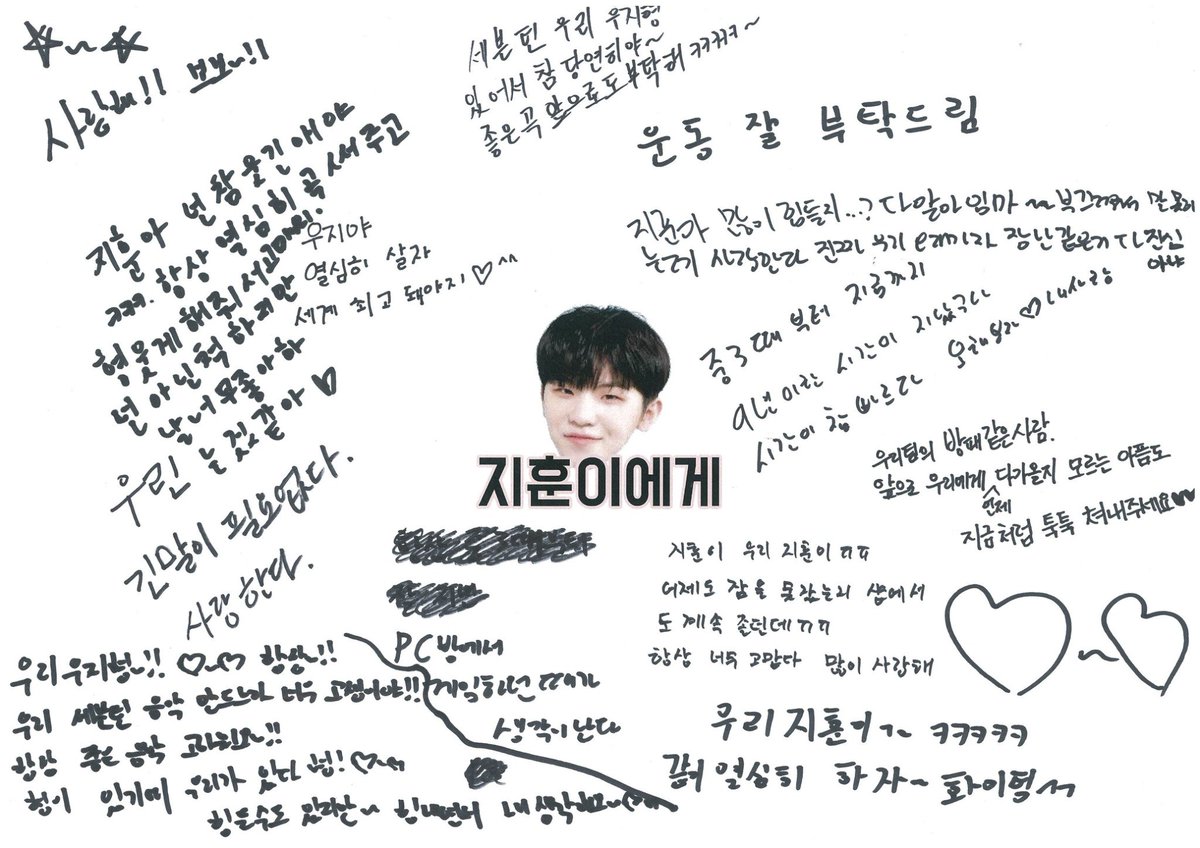 사랑해!! 뽀뽀~!!
세븐틴 우리 우지형
있어서 참 당연히야~
좋은 곡 앞으로도 부탁해 ㅋㅋㅋㅋ~
운동 잘 부탁드림
지훈아 넌 참 웃긴 애야
ㅋㅋㅋ. 항상 열심히 곡 써주고
형 웃게 해줘서 고마워.
넌 아닌척 하지만
날 너무좋아하
는 것 같아♡
우지야
열심히 살자
세계 최고 돼야지♡^^
지훈아 많이 힘들지...? 다알아 임마 ~ 부끄러워서 말 못해
사랑한다 진짜 장난같은거 다 진심
이야
중3때 부터 지금까지
9년이란 시간이 지났구나
시간이 참 빠르다 오래보자♡내사랑
우리팀의 방패같은사람.
앞으로 우리에게 언제 다가올지 모르는 아픔도
지금처럼 툭툭 쳐내주세요♥♥
우린
긴말이 필요없다.
사랑한다.
지훈이에게
지훈이 우리 지훈이ㅠㅠ
어제도 잠을 못잤는지 샵에서
도 계속 졸던데ㅠㅠ
항상 너무 고맙다 많이 사랑해
PC방에서
게임하던 때가
생각이 난다
우리 우지형~!! ♡~♡ 항상~!!
우리 세븐틴 음악 만드느라 너무 고생이야!!
항상 좋은 음악 고마워요~!!
형이 있기에 우리가 있다 형! ♡~
힘들수도 있지만~ 힘내면서 내 생각해요~
우리지훈이~ ㅋㅋㅋㅋㅋ
같이 열심히 하자~ 화이팅~